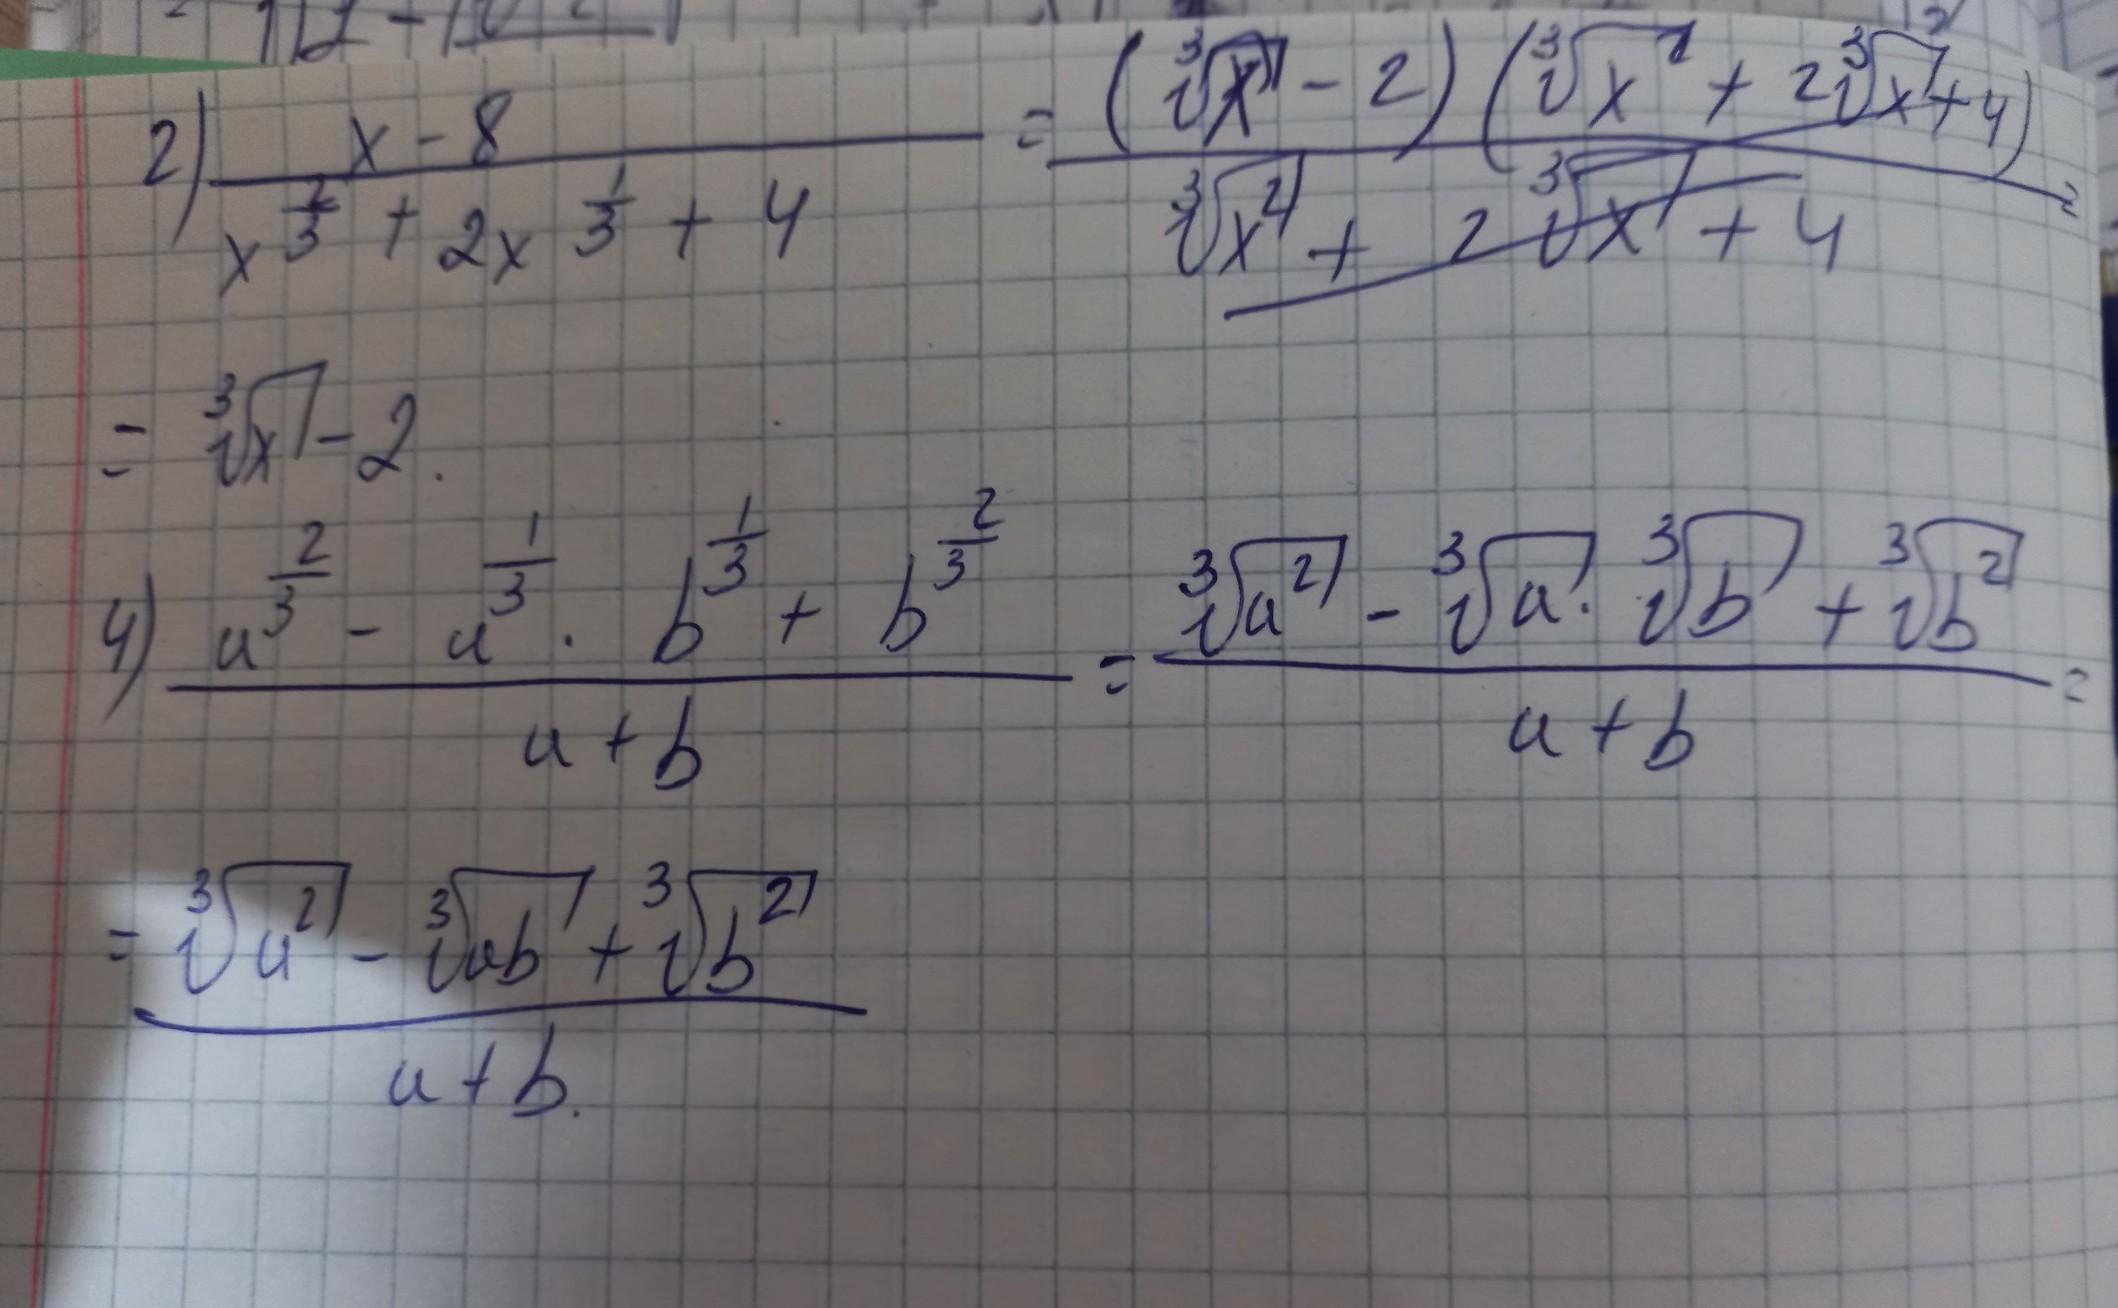 2) \frac{x - 8}{x^{\frac{2}{3}} + 2x^{\frac{1}{3}} + 4} = \frac{(\sqrt[3]{x} - 2)(\sqrt[3]{x^2} + 2\sqrt[3]{x} + 4)}{\sqrt[3]{x^2} + 2\sqrt[3]{x} + 4} =
= \sqrt[3]{x} - 2.
4) \frac{a^{\frac{2}{3}} - a^{\frac{1}{3}} \cdot b^{\frac{1}{3}} + b^{\frac{2}{3}}}{a + b} = \frac{\sqrt[3]{a^2} - \sqrt[3]{a} \cdot \sqrt[3]{b} + \sqrt[3]{b^2}}{a + b} =
= \frac{\sqrt[3]{a^2} - \sqrt[3]{ab} + \sqrt[3]{b^2}}{a + b}.